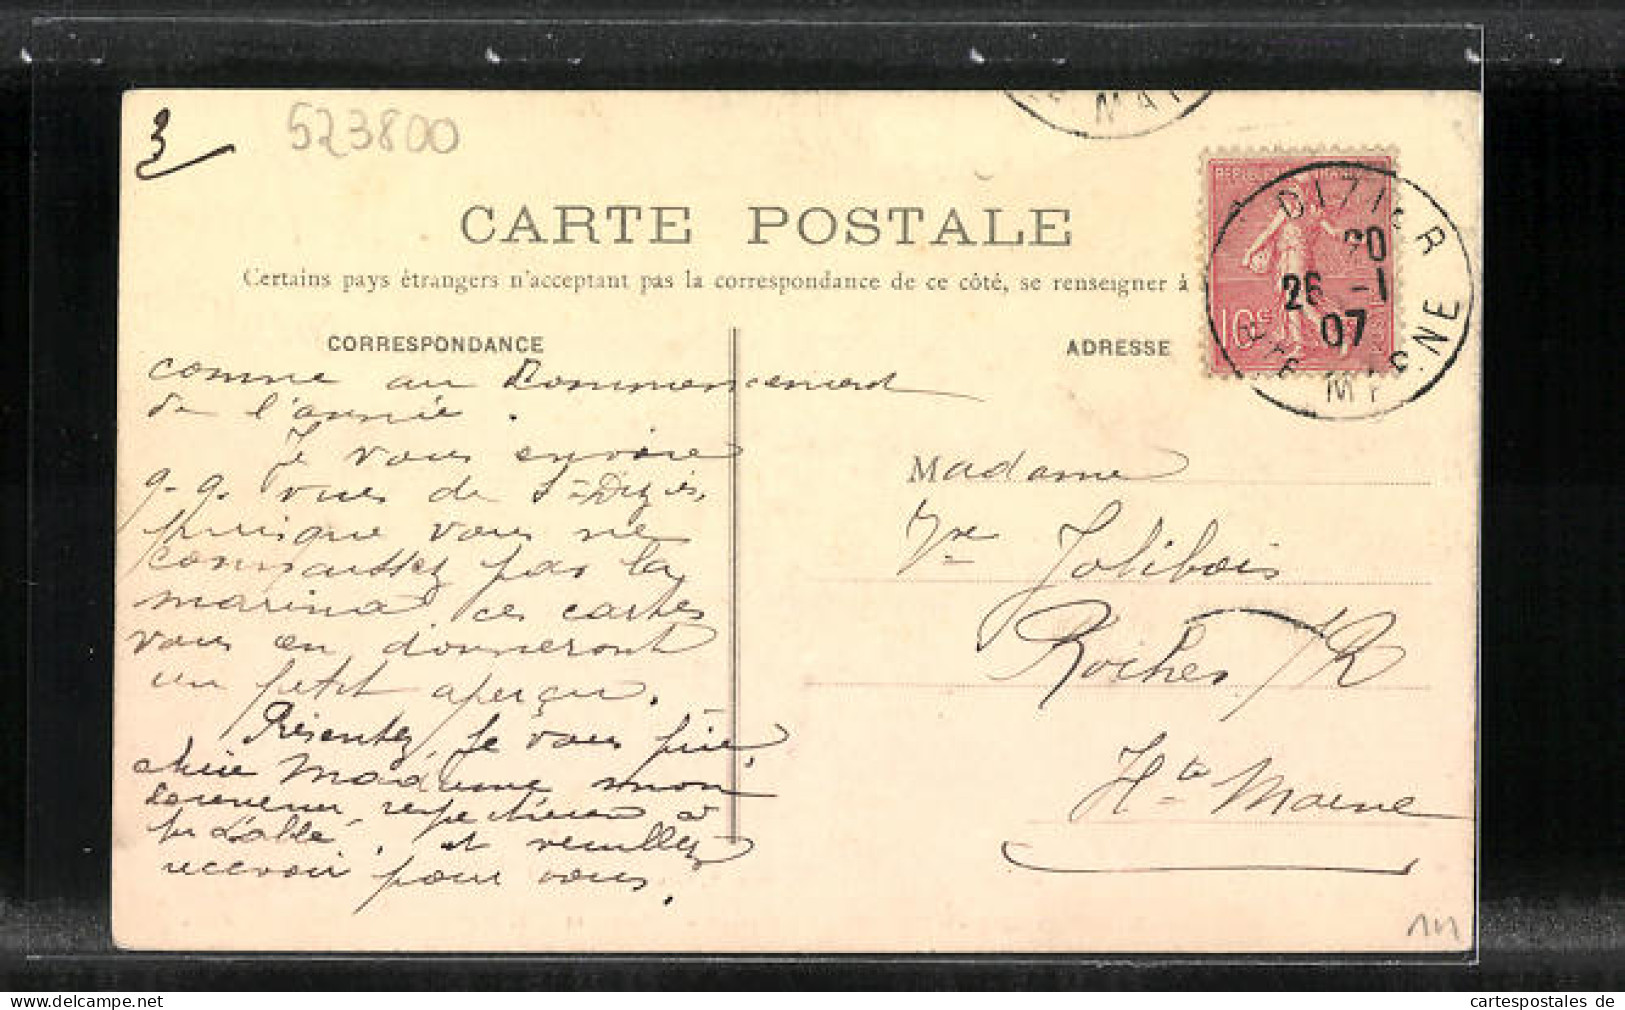 3
523800
CARTE POSTALE
Certains pays étrangers n'acceptant pas la correspondance de ce côté, se renseigner à
CORRESPONDANCE
comme au Commencement
de l'année.
Je vous envoie
q.q. vues de St-Dizier,
puisque vous ne
connaissez pas la
marina ces cartes
vous en donneront
un petit aperçu.
Présentez, je vous prie,
chère Madame mon
respectueux à
et veuillez
recevoir pour vous.
ADRESSE
Madame
Vve Jolibois
Roches s/R
Hte Marne
REPUBLIQUE FRANCAISE
10c
DIZIER
26 -1
07
HTE MARNE
MA
111
www.delcampe.net
cartespostales de